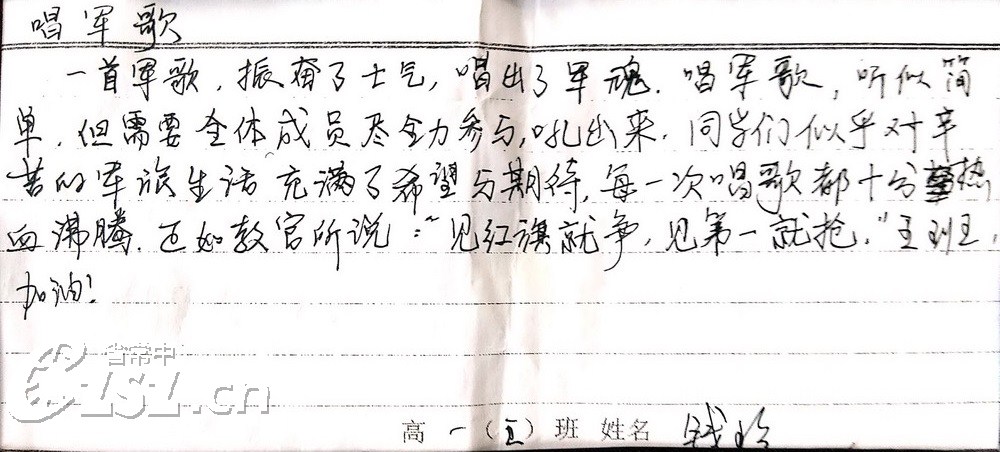 唱军歌
一首军歌,振奋了士气,唱出了军魂.唱军歌,听似简
单,但需要全体成员尽全力参与,吼出来.同学们似乎对辛
苦的军旅生活充满了希望与期待,每一次唱歌都十分热
血沸腾.正如教官所说:“见红旗就争,见第一就抢."王班,
加油!
省常中
CZSZ.cn
高一(五)班 姓名 钱